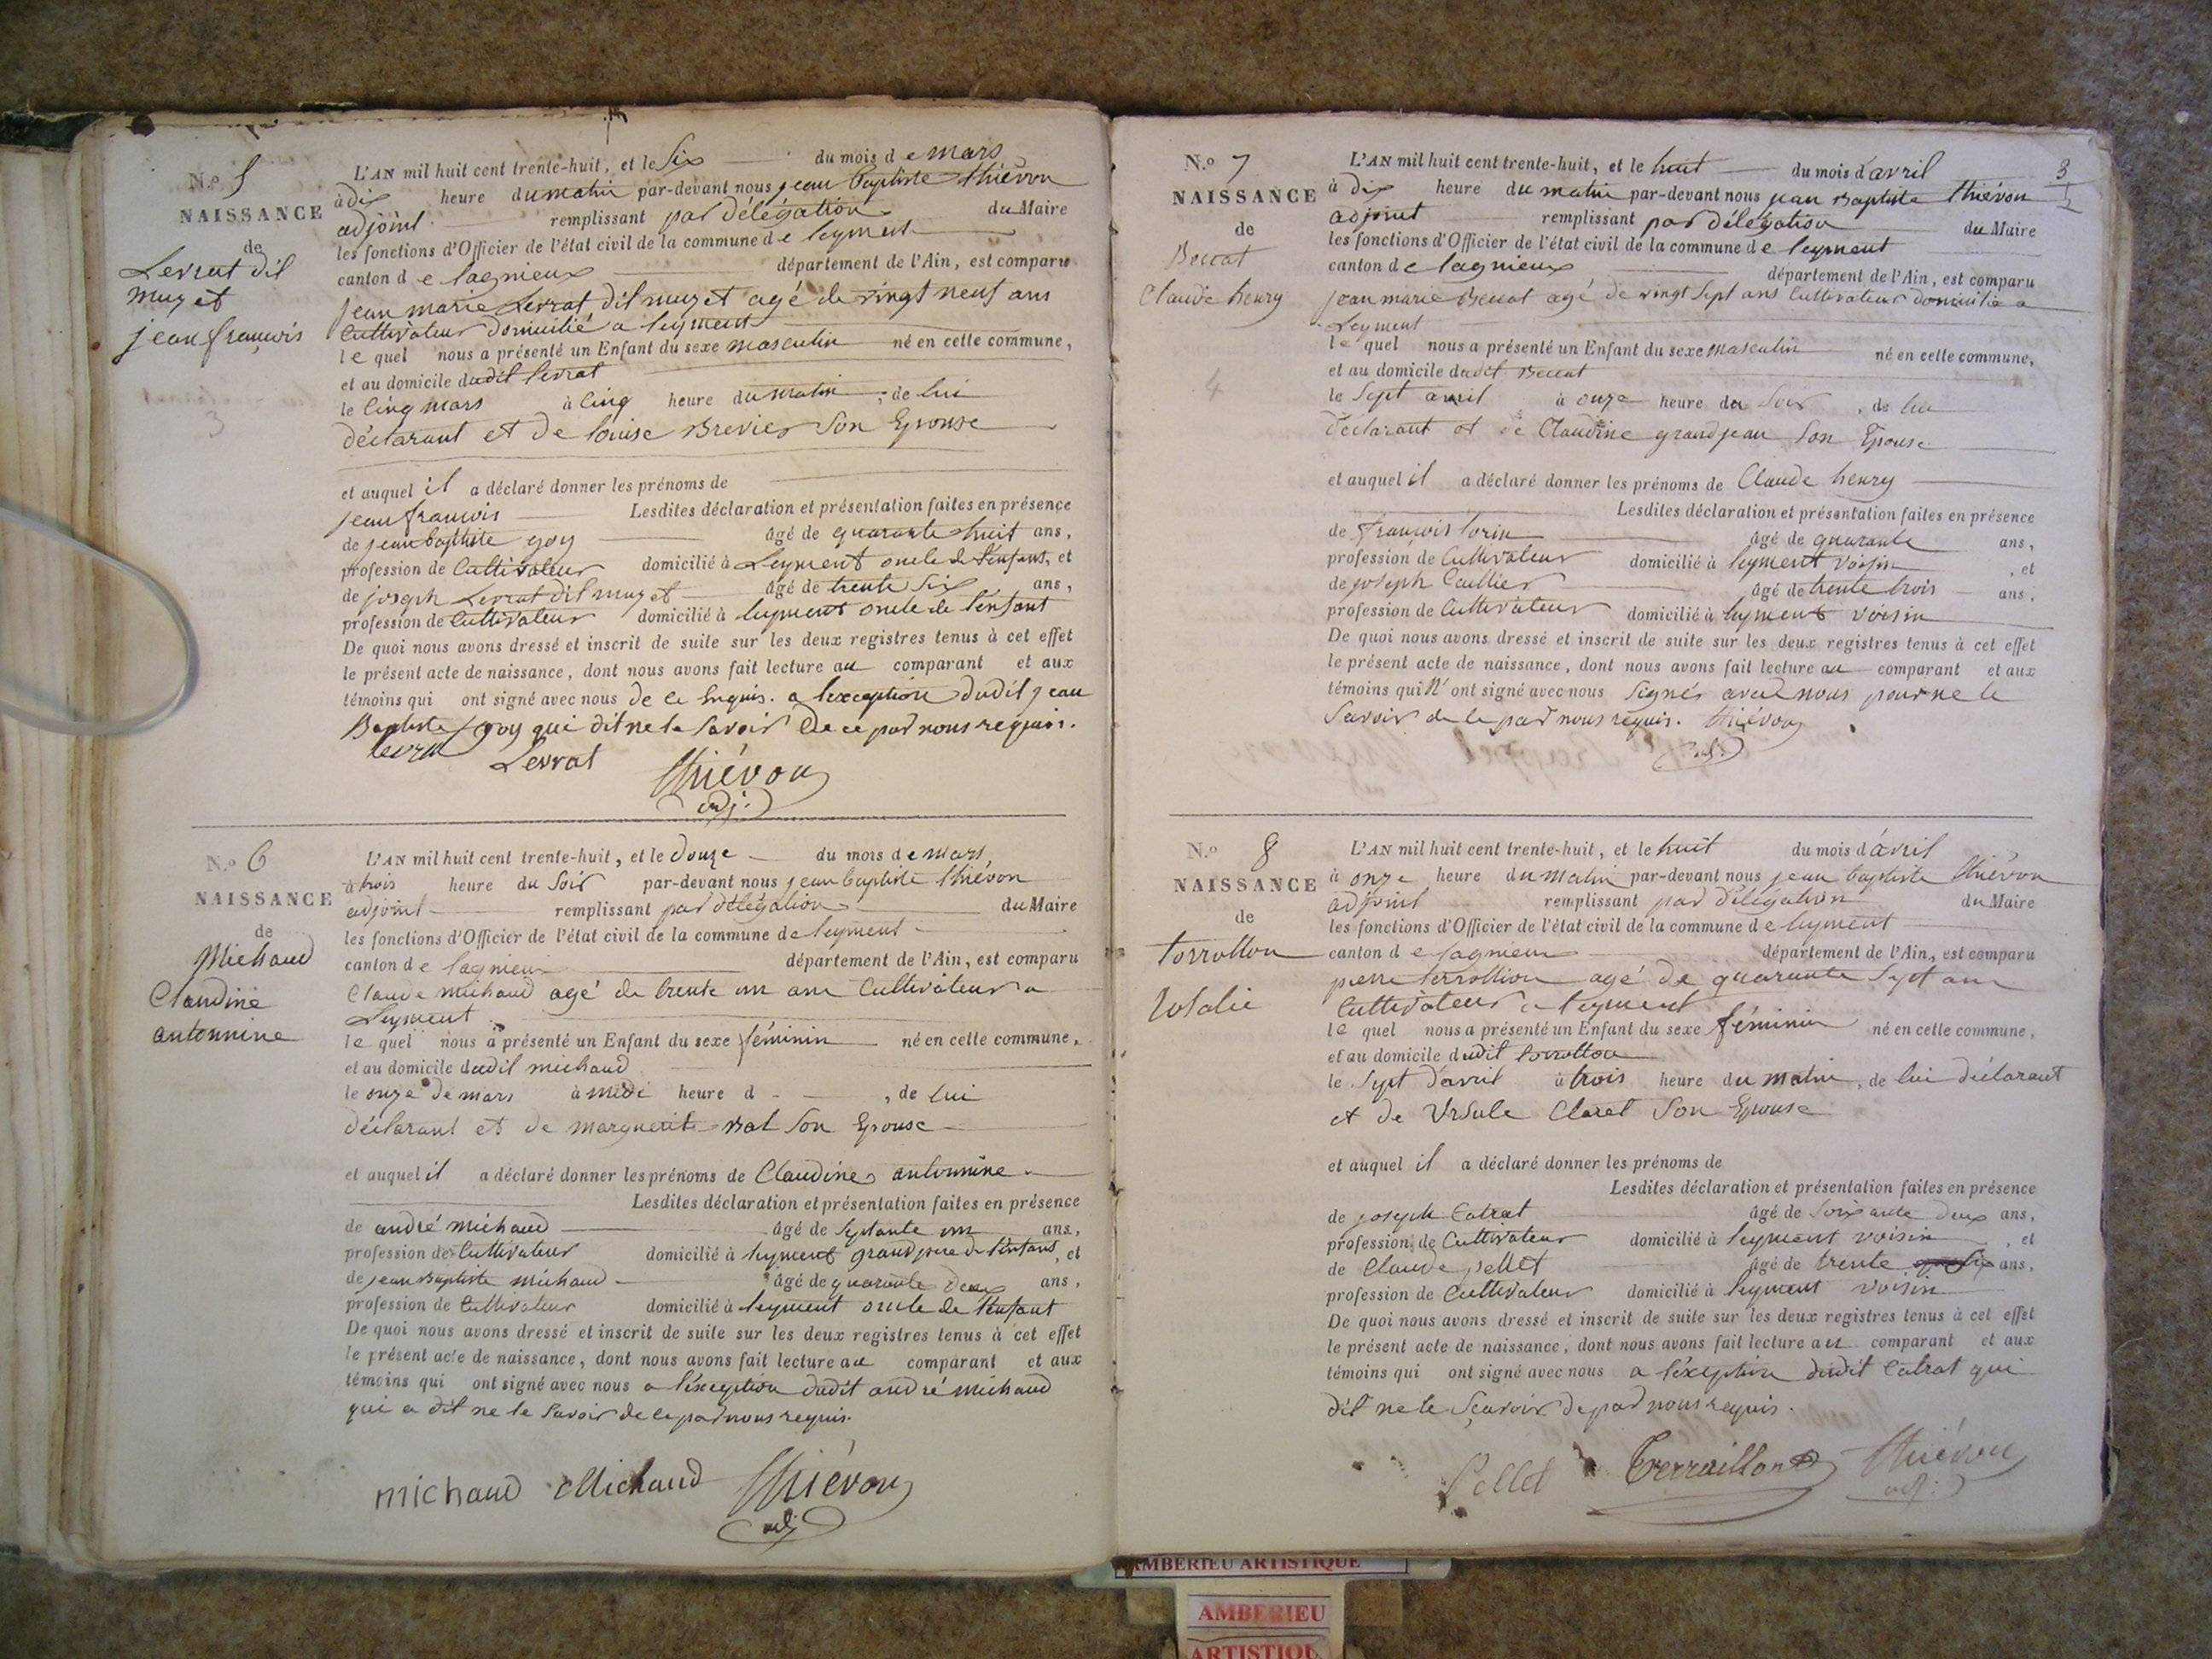 N.º 5
NAISSANCE
de
Levrat dit
muzet
jean françois
3
L'AN mil huit cent trente-huit, et le Six du mois de mars
à dix heure du matin par-devant nous jean baptiste thiévon
adjoint remplissant par délégation du Maire
les fonctions d'Officier de l'état civil de la commune de leyment
canton de lagnieux département de l'Ain, est comparu
jean marie Levrat dit muzet agé de vingt neuf ans
Cultivateur domicilié a leyment
le quel nous a présenté un Enfant du sexe masculin né en cette commune,
et au domicile dudit levrat
le cinq mars à cinq heure du matin, de lui
déclarant et de louise Brevier Son Epouse
et auquel il a déclaré donner les prénoms de
jean françois Lesdites déclaration et présentation faites en présence
de jean baptiste goy âgé de quarante huit ans,
profession de Cultivateur domicilié à Leyment oncle de l'enfant, et
de joseph Levrat dit muzet âgé de trente Six ans,
profession de Cultivateur domicilié à leyment oncle de l'enfant
De quoi nous avons dressé et inscrit de suite sur les deux registres tenus à cet effet
le présent acte de naissance, dont nous avons fait lecture au comparant et aux
témoins qui ont signé avec nous de ce requis. a l'exception dudit jean
Baptiste goy qui dit ne le Savoir De ce par nous requis.
levrat Levrat Thiévon
adj.
N.º 6
NAISSANCE
de
Michaud
Claudine
antonnine
L'AN mil huit cent trente-huit, et le douze du mois de mars,
à trois heure du Soir par-devant nous jean baptiste thiévon
adjoint remplissant par délégation du Maire
les fonctions d'Officier de l'état civil de la commune de leyment
canton de lagnieux département de l'Ain, est comparu
Claude michaud agé de trente un ans Cultivateur a
Leyment
le quel nous a présenté un Enfant du sexe féminin né en cette commune,
et au domicile dudit michaud
le onze de mars à midi heure d , de lui
déclarant et de marguerite Bal Son Epouse
et auquel il a déclaré donner les prénoms de Claudine antonnine
Lesdites déclaration et présentation faites en présence
de andré michaud âgé de Septante un ans,
profession de Cultivateur domicilié à leyment grand père de l'enfant, et
de jean Baptiste michaud âgé de quarante deux ans,
profession de Cultivateur domicilié à leyment oncle de l'enfant
De quoi nous avons dressé et inscrit de suite sur les deux registres tenus à cet effet
le présent acte de naissance, dont nous avons fait lecture au comparant et aux
témoins qui ont signé avec nous a l'éxception dudit andré michaud
qui a dit ne le Savoir de ce par nous requis.
michaud Michaud Thiévon
adj.
3
N.º 7
NAISSANCE
de
Beccat
Claude henry
4
L'AN mil huit cent trente-huit, et le huit du mois d'avril
à dix heure du matin par-devant nous jean Baptiste thiévon
adjoint remplissant par délégation du Maire
les fonctions d'Officier de l'état civil de la commune de leyment
canton de lagnieux département de l'Ain, est comparu
jean marie Beccat agé de vingt Sept ans Cultivateur domicilié a
Leyment
le quel nous a présenté un Enfant du sexe masculin né en cette commune,
et au domicile dudit Beccat
le Sept avril à onze heure du Soir, de lui
déclarant et de Claudine grandjean Son Epouse
et auquel il a déclaré donner les prénoms de Claude henry
Lesdites déclaration et présentation faites en présence
de françois lorin âgé de quarante ans,
profession de Cultivateur domicilié à leyment voisin, et
de joseph Caillier âgé de trente trois ans,
profession de Cultivateur domicilié à leyment voisin
De quoi nous avons dressé et inscrit de suite sur les deux registres tenus à cet effet
le présent acte de naissance, dont nous avons fait lecture au comparant et aux
témoins qui n'ont signé avec nous Signés avec nous pour ne le
Savoir de ce par nous requis. Thiévon
adj.
N.º 8
NAISSANCE
de
torrollon
rosalie
L'AN mil huit cent trente-huit, et le huit du mois d'avril
à onze heure du matin par-devant nous jean baptiste thiévon
adjoint remplissant par délégation du Maire
les fonctions d'Officier de l'état civil de la commune de leyment
canton de lagnieux département de l'Ain, est comparu
pierre terrollion agé de quarante Sept ans
Cultivateur a leyment
le quel nous a présenté un Enfant du sexe féminin né en cette commune,
et au domicile dudit torrollon
le Sept d'avril à trois heure du matin, de lui déclarant
et de Ursule Claret Son Epouse
et auquel il a déclaré donner les prénoms de
Lesdites déclaration et présentation faites en présence
de joseph Catrat âgé de Soixante deux ans,
profession de Cultivateur domicilié à leyment voisin, et
de Claude pellet âgé de trente ans,
profession de Cultivateur domicilié à leyment voisin
De quoi nous avons dressé et inscrit de suite sur les deux registres tenus à cet effet
le présent acte de naissance, dont nous avons fait lecture au comparant et aux
témoins qui ont signé avec nous a l'éxception dudit Catrat qui
dit ne le Sçavoir de par nous requis.
Pellet Terraillon Thiévon
adj.
AMBERIEU ARTISTIQUE
AMBERIEU
ARTISTIQU